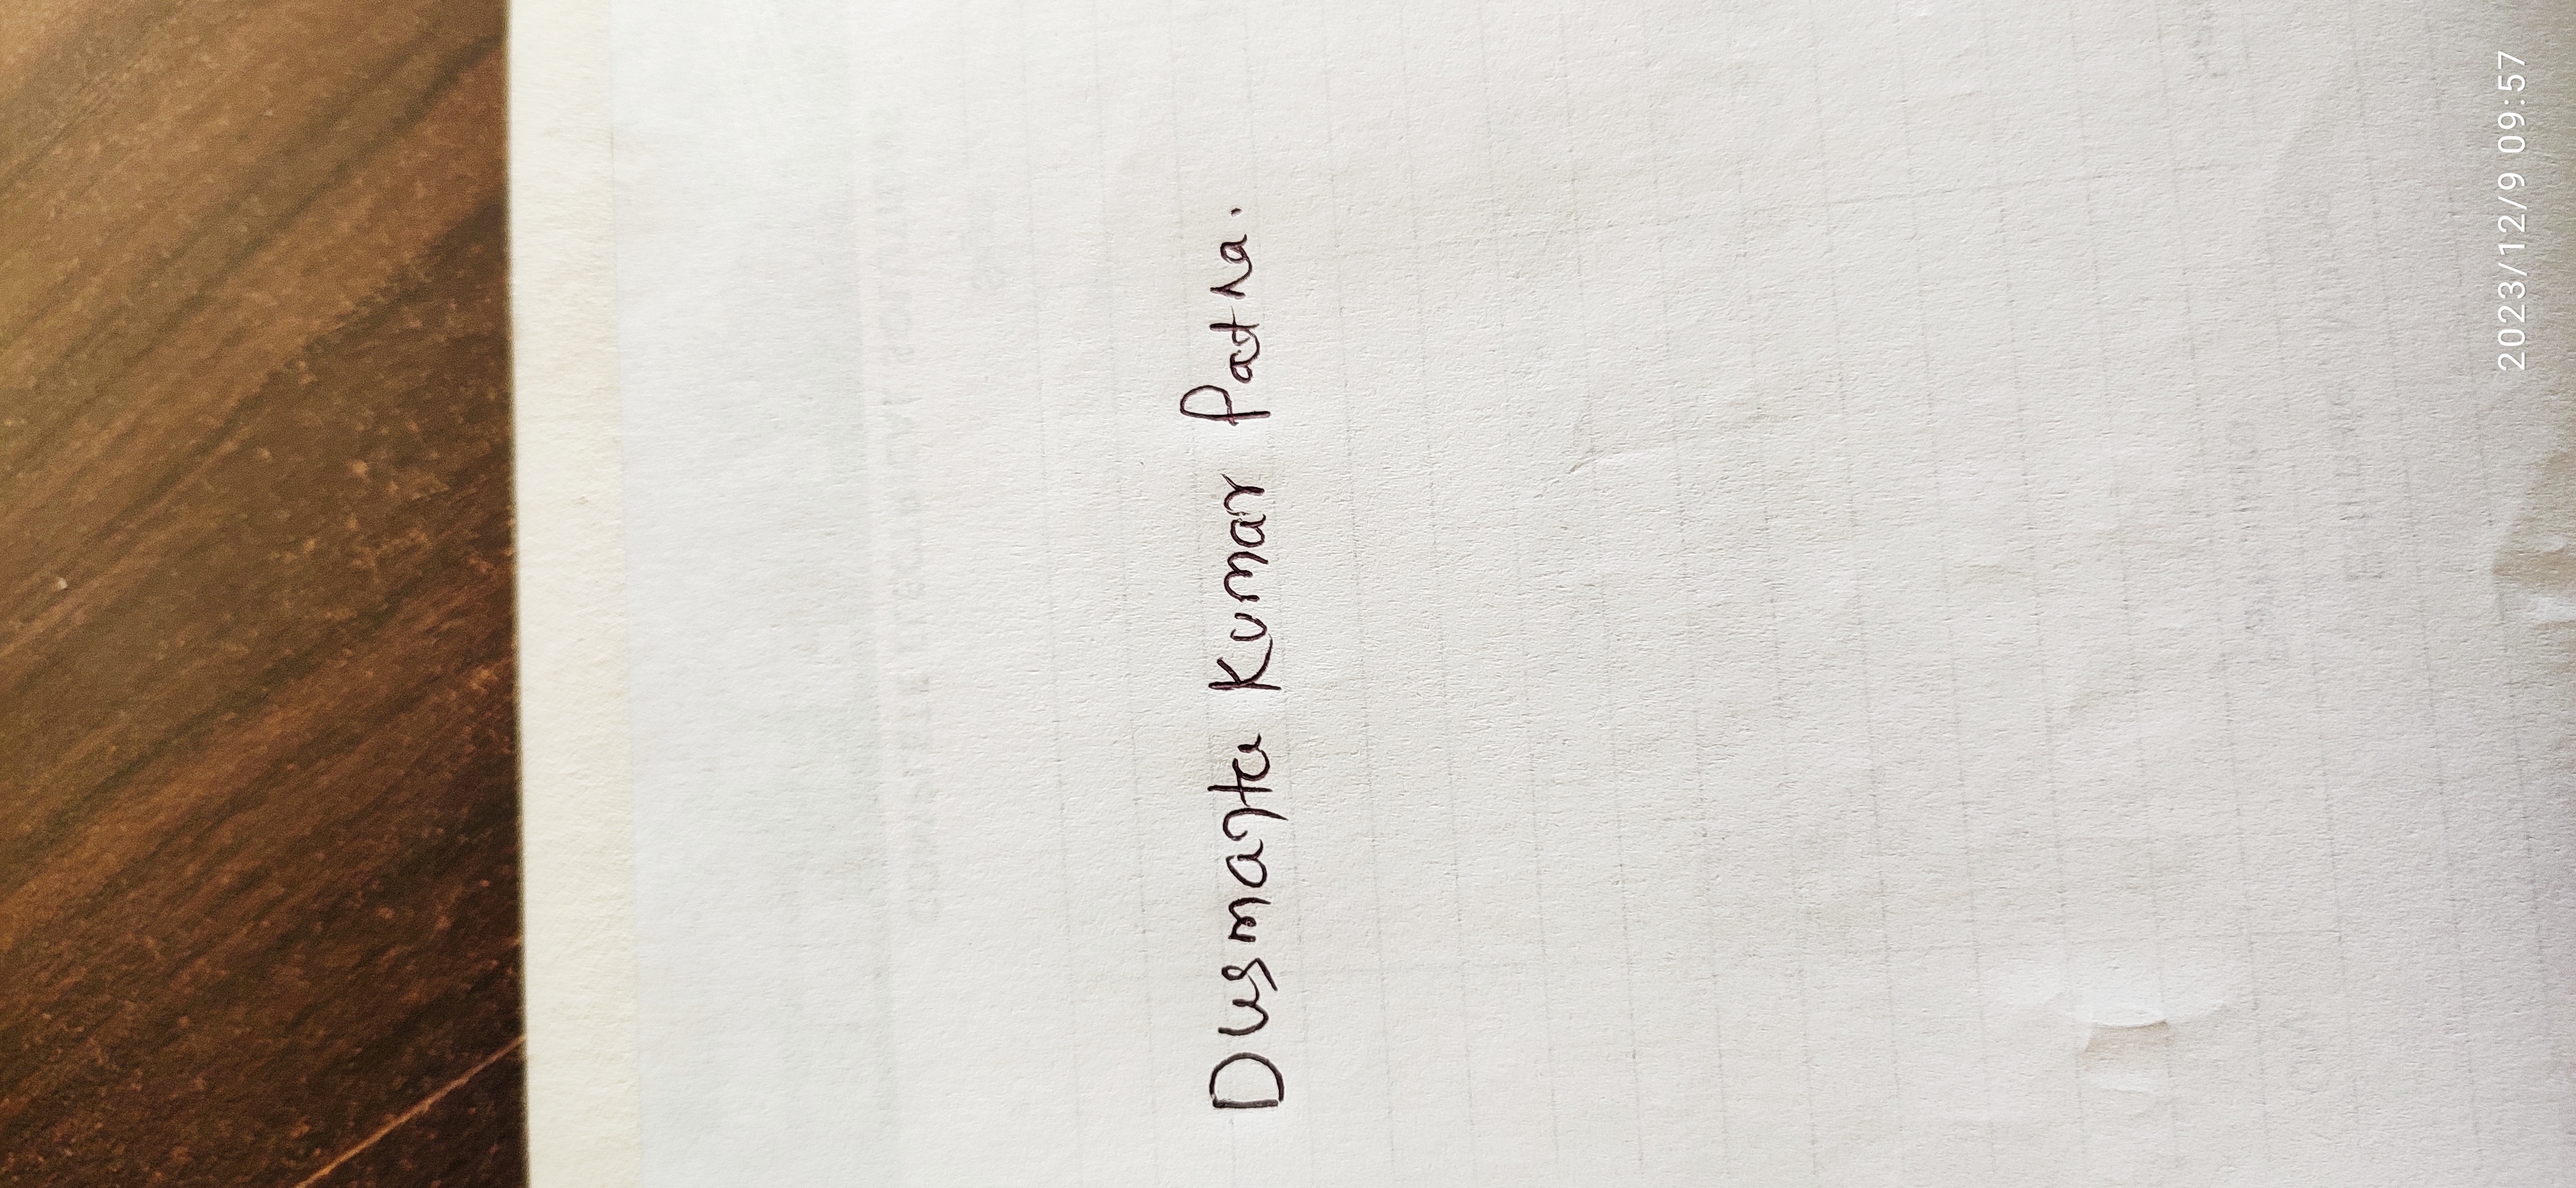 Dusmanta Kumar Patna.
2023/12/9 09:57